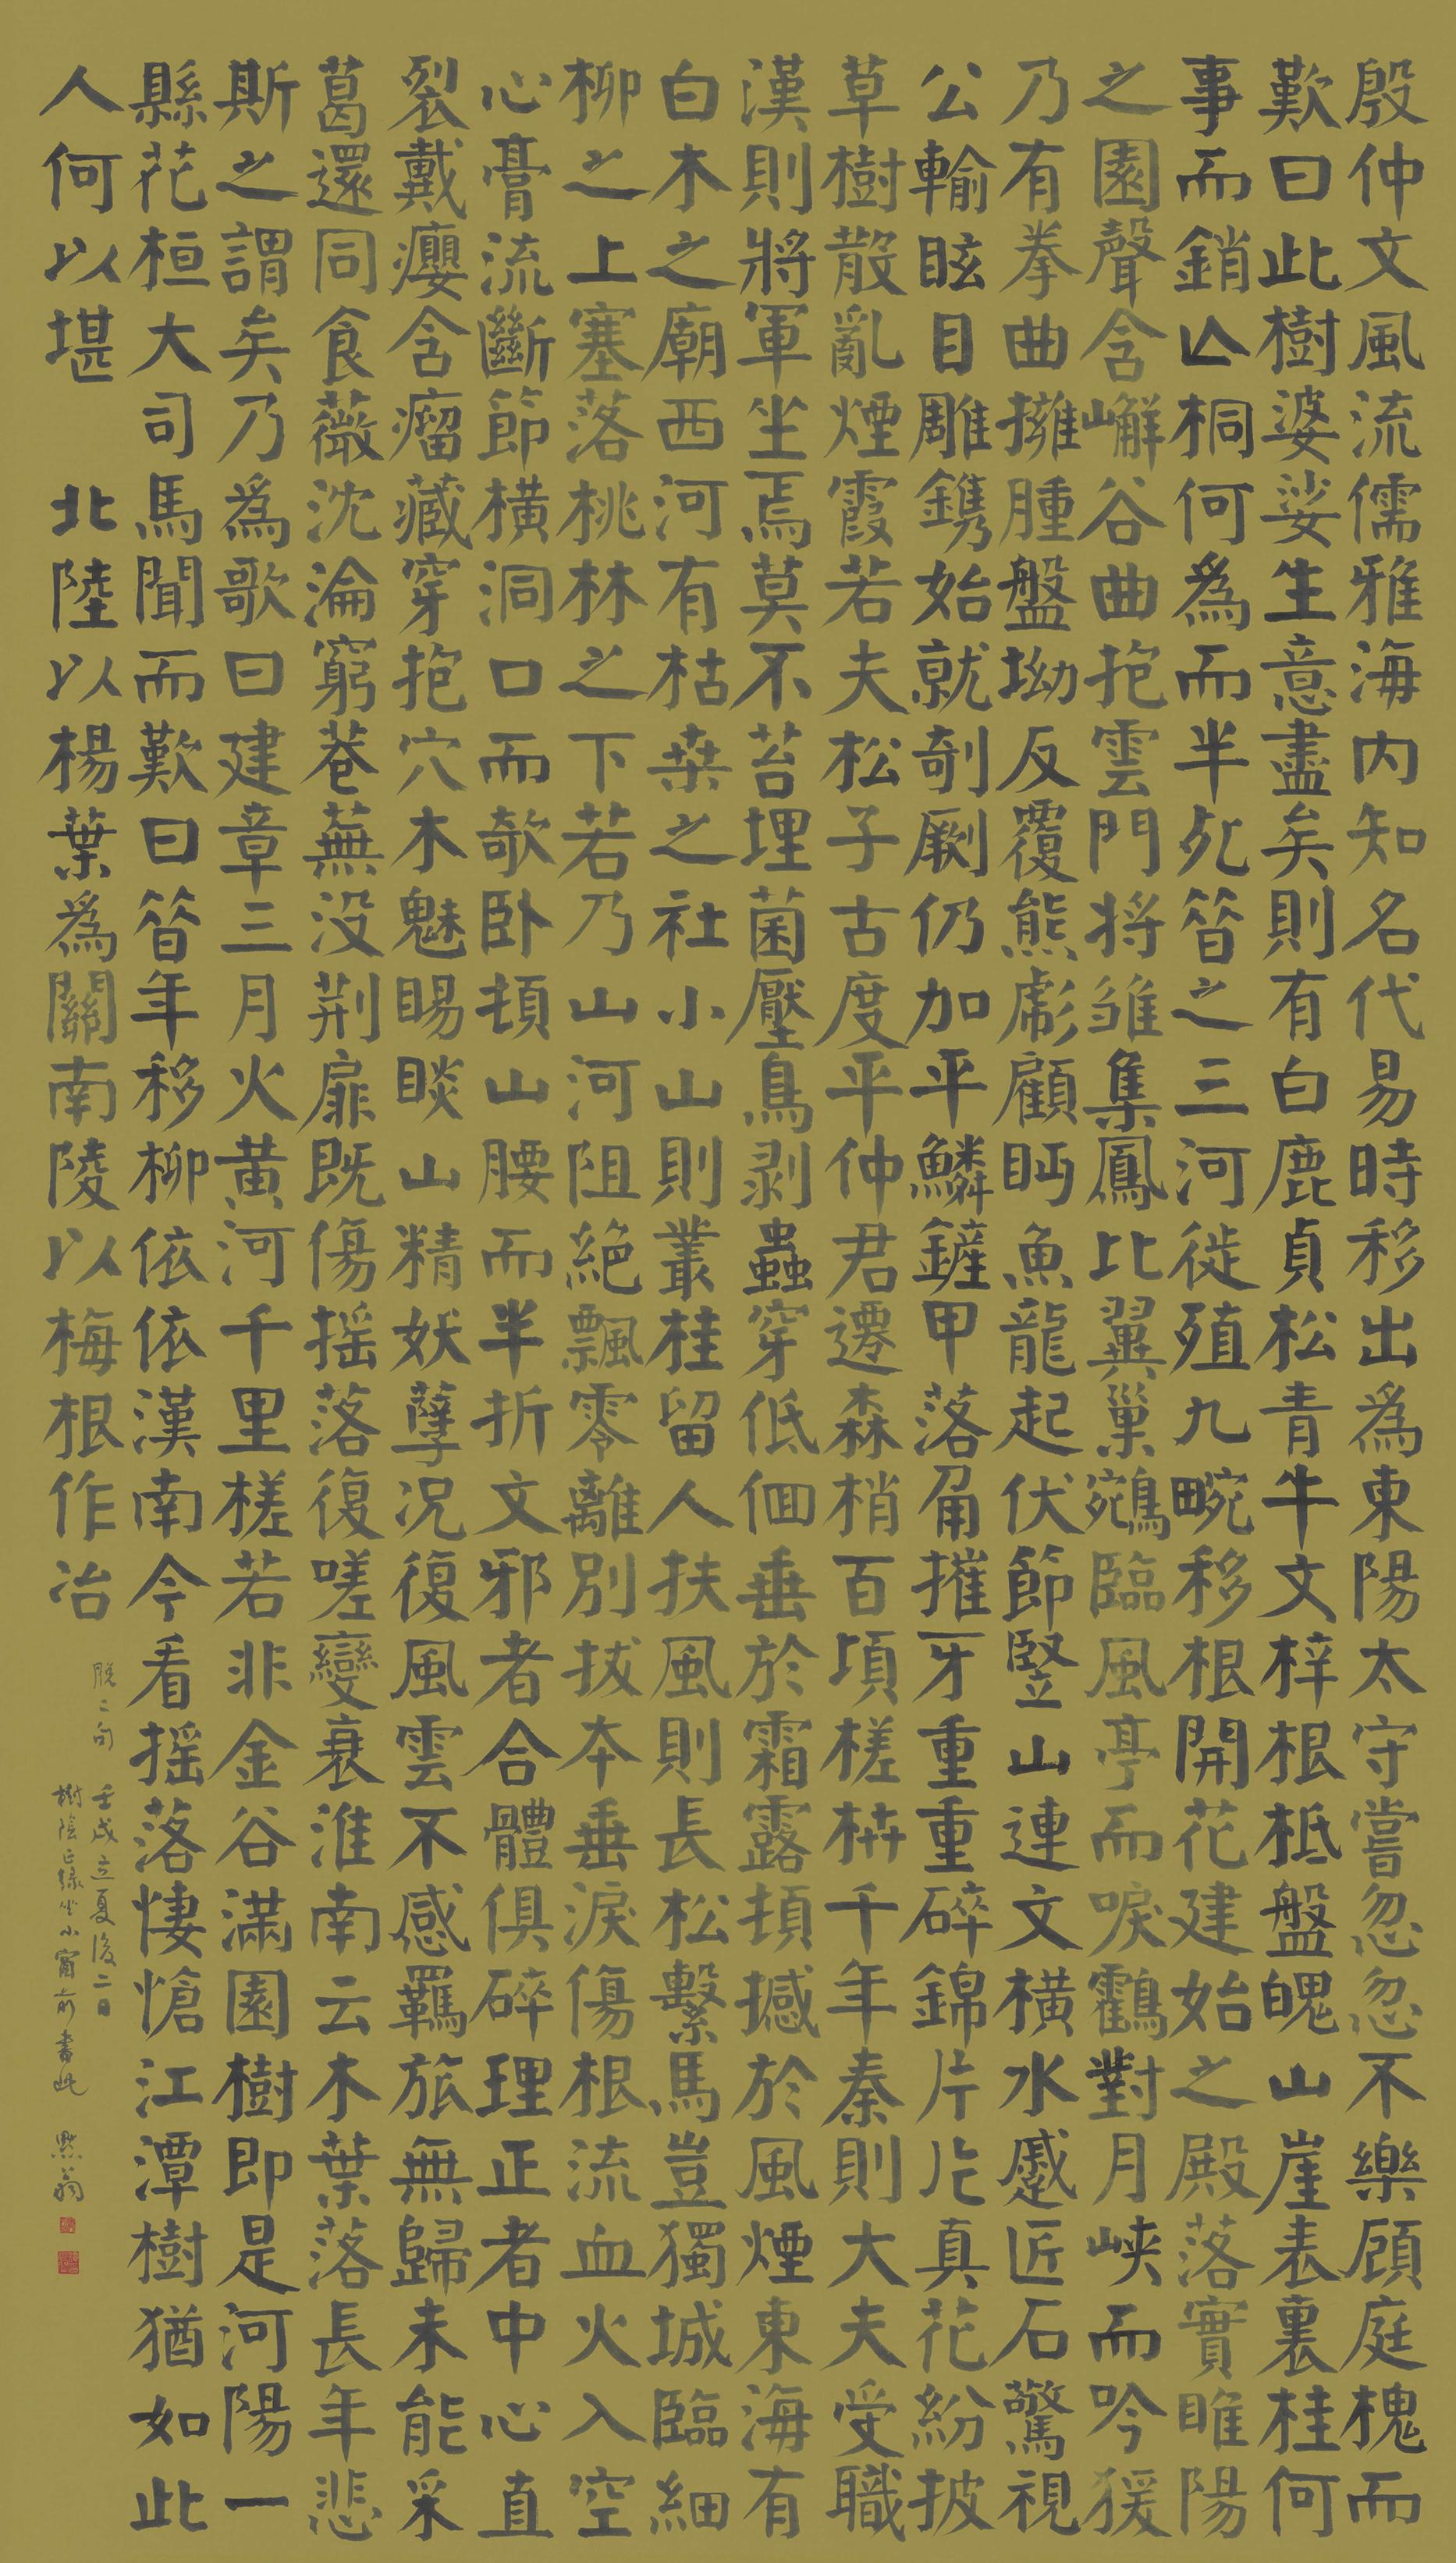 殷仲文風流儒雅海内知名代易時移出爲東陽太守嘗忽忽不樂顧庭槐而
歎曰此樹婆娑生意盡矣則有白鹿貞松青牛文梓根柢盤魄山崖表裏桂何
事而銷亾桐何爲而半死昝之三河徙殖九畹移根開花建始之殿落實睢陽
之園聲含嶰谷曲抱雲門将雏集鳳比翼巢鵷臨風亭而唳鶴對月峽而吟猨
乃有拳曲擁腫盤坳反覆熊彪顧眄魚龍起伏節豎山連文橫水蹙匠石驚視
公輸眩目雕鐫始就剞劂仍加平鱗鏟甲落角摧牙重重碎錦片片真花紛披
草樹散亂煙霞若夫松子古度平仲君遷森梢百頃槎枿千年秦則大夫受職
漢則將軍坐焉莫不苔埋菌壓鳥剥蟲穿低佪垂於霜露頓撼於風煙東海有
白木之廟西河有枯桒之社小山則叢桂留人扶風則長松繫馬豈獨城臨細
柳之上塞落桃林之下若乃山河阻絶飄零離別拔夲垂淚傷根流血火入空
心膏流斷節橫洞口而欹卧頓山腰而半折文邪者合體俱碎理正者中心直
裂戴癭含瘤藏穿抱穴木魅賜睒山精妖孽況復風雲不感羈旅無歸未能采
葛還同食薇沈淪窮巷蕪没荆扉既傷摇落復嗟變衰淮南云木葉落長年悲
斯之謂矣乃爲歌曰建章三月火黃河千里槎若非金谷滿園樹即是河陽一
縣花桓大司馬聞而歎曰昝年移柳依依漢南今看摇落悽愴江潭樹猶如此
人何以堪 北陸以楊葉爲關南陵以梅根作冶
脱二句 壬戌立夏後二日
樹陰正緑坐小窗前書此 默翁